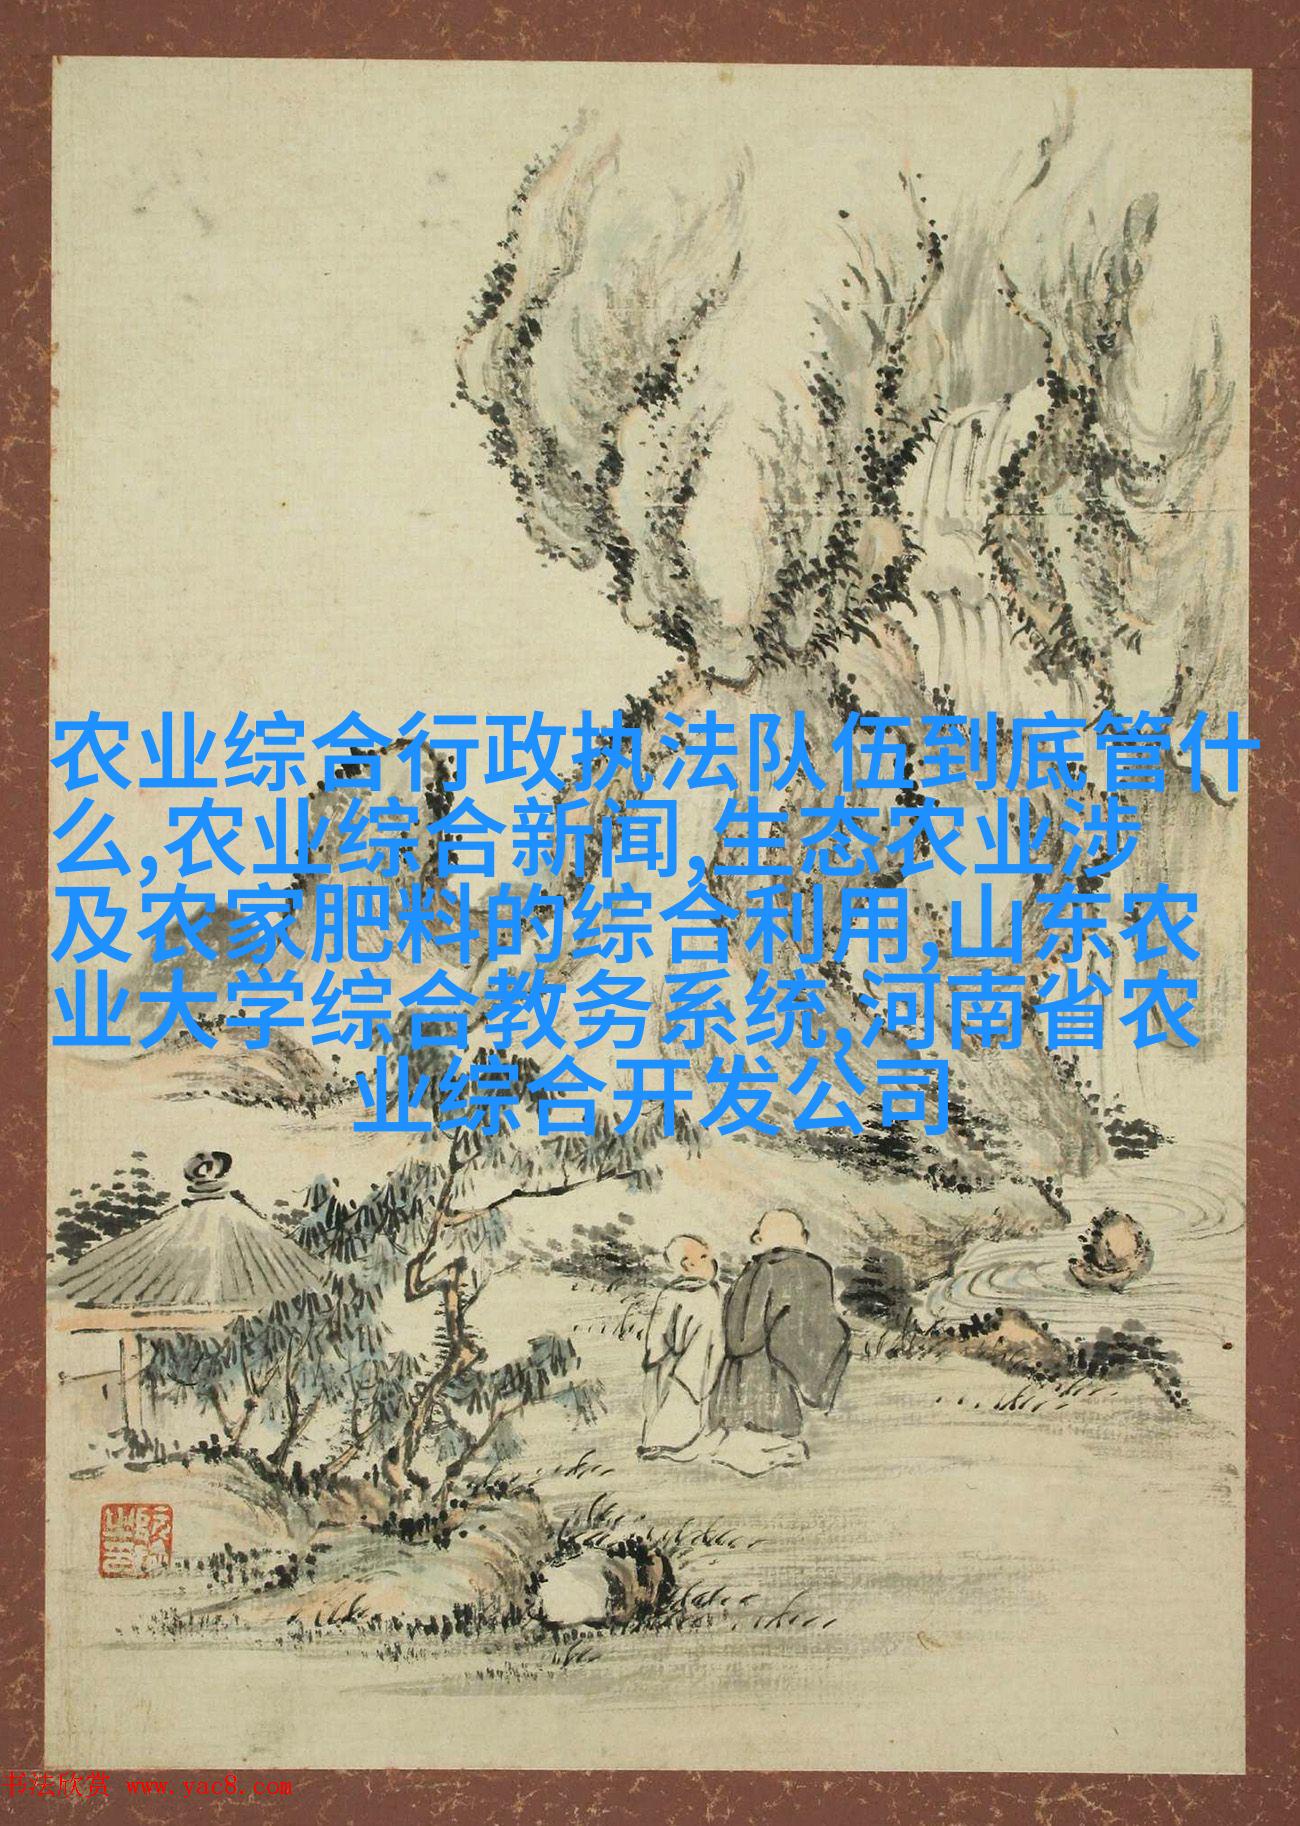 农业综合行政执法队伍到底管什
么,农业综合新闻,生态农业涉
及农家肥料的综合利用,山东农
业大学综合教务系统,河南省农
业综合开发公司
书法欣赏 www.yac8.com